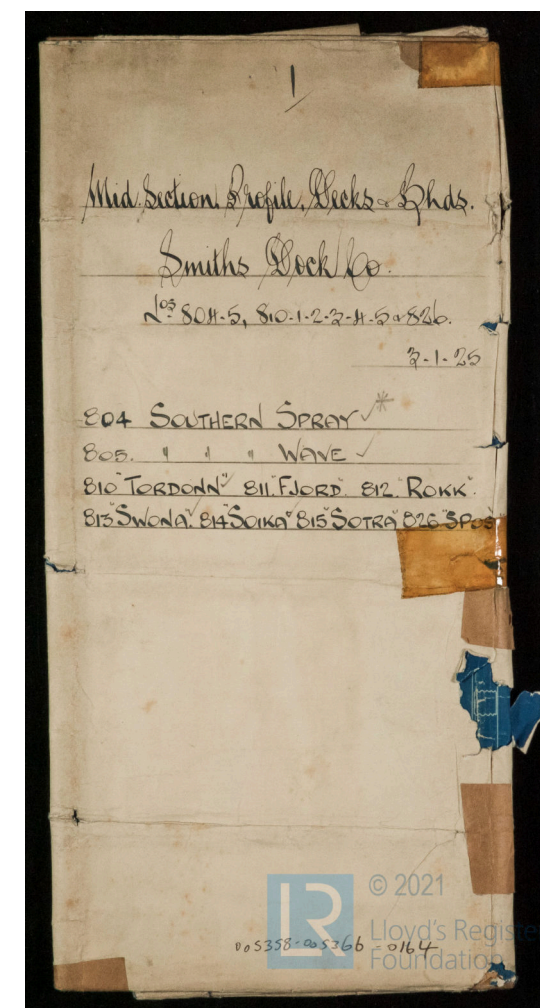 1
Mid. Section. Profile. Decks & Bhds.
Smiths Dock Co.
Nos. 804-5, 810-1-2-3-4-5 & 826.
3-1-25
804 SOUTHERN SPRAY ✓*
805. " " " WAVE ✓
810 "TORDONN" ✓ 811. "FJORD" 812. "ROKK".
813 "SWONA" ✓ 814 "SOIKA" ✓ 815 "SOTRA" ✓ 826 "SPOS
LR
© 2021
Lloyd's Registe
Foundation
005358-005366-0164